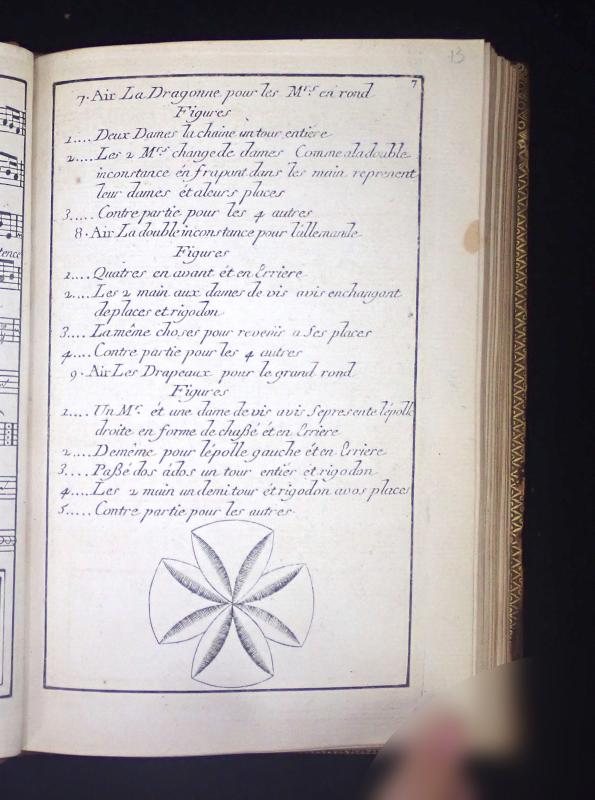 13
7
7. Air La Dragonne pour les Mrs en rond
Figures
1.... Deux Dames la chaine un tour entiere
2.... Les 2 Mrs change de dames Comme a la double
inconstance én frapant dans les main reprenent
leur dames ét a leurs places
3..... Contre partie pour les 4 autres
8. Air La double inconstance pour l'allemande
Figures
1.... Quatres en avant ét en Erriere
2.... Les 2 main aux dames de vis avis enchangant
de places et rigodon
3.... La même choses pour revenir a Ses places
4.... Contre partie pour les 4 autres
9. Air Les Drapeaux pour le grand rond
Figures
1.... Un Mr. ét une dame de vis avis Se presente l'épolle
droite en forme de chaßé ét en Erriere
2.... De même pour l'épolle gauche ét en Erriere
3.... Paßé dos ádos un tour entiér ét rigodon
4.... Les 2 main un demi tour ét rigodon avos places
5..... Contre partie pour les autres
tence